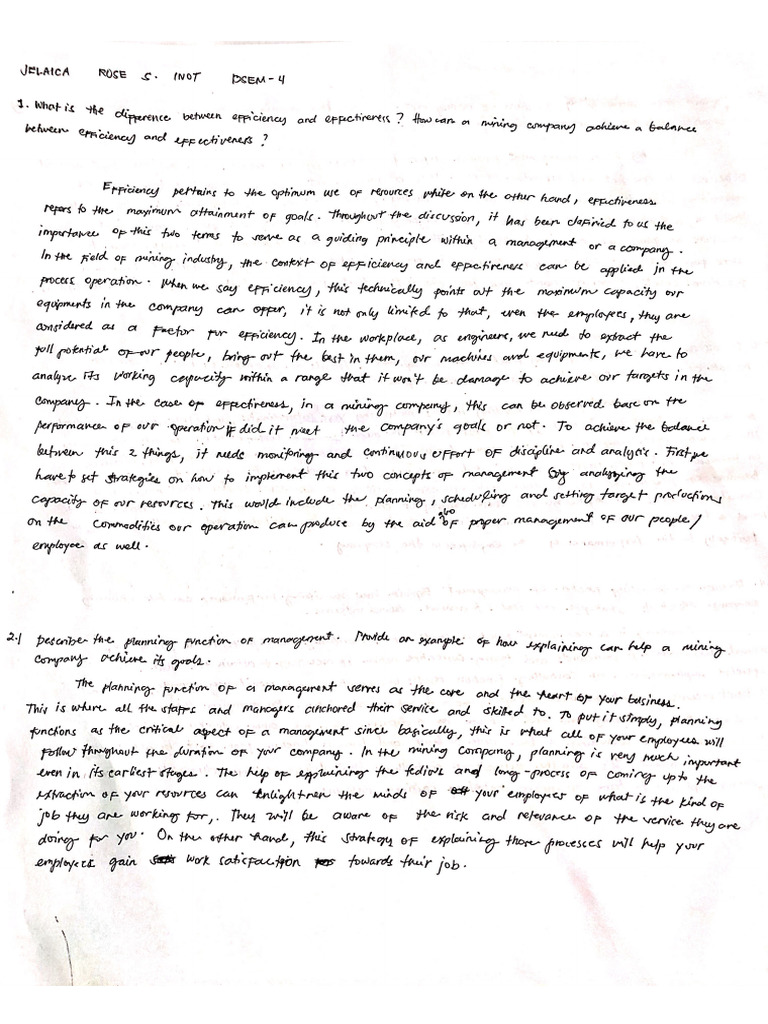 JELAICA ROSE S. INOT BSEM-4
1. What is the difference between efficiency and effectiveness? How can a mining company achieve a balance
between efficiency and effectiveness?
Efficiency pertains to the optimum use of resources while on the other hand, effectiveness
refers to the maximum attainment of goals. Throughout the discussion, it has been clafiried to us the
importance of this two terms to serve as a guiding principle within a management or a company.
In the field of mining industry, the context of efficiency and effectiveness can be applied in the
process operation. When we say efficiency, this technically points out the maximum capacity our
equipments in the company can offer, it is not only limited to that, even the employees, they are
considered as a factor for efficiency. In the workplace, as engineers, we need to extract the
full potential of our people, bring out the best in them, our machines and equipments, we have to
analyze its working capacity within a range that it won't be damage to achieve our targets in the
company. In the case of effectiveness, in a mining company, this can be observed base on the
performance of our operation if did it meet the company's goals or not. To achieve the balance
between this 2 things, it needs monitoring and continuous effort of discipline and analysis. First, we
have to set strategies on how to implement this two concepts of management by analyzing the
capacity of our resources. This would include the planning, scheduling and setting target productions
on the commodities our operation can produce by the aid also of proper management of our people/
employee as well.
2.) Describe the planning function of management. Provide an example of how explaining can help a mining
company achieve its goals.
The planning function of a management serves as the core and the heart of your business.
This is where all the staffs and managers anchored their service and skilled to. To put it simply, planning
functions as the critical aspect of a management since basically, this is what all of your employees will
follow throughout the duration of your company. In the mining company, planning is very much important
even in its earliest stages. The help of explaining the tedious and long-process of coming up to the
extraction of your resources can enlightnen the minds of your employees of what is the kind of
job they are working for,. They will be aware of the risk and relevance of the service they are
doing for you. On the other hand, this strategy of explaining those processes will help your
employees gain work satisfaction towards their job.